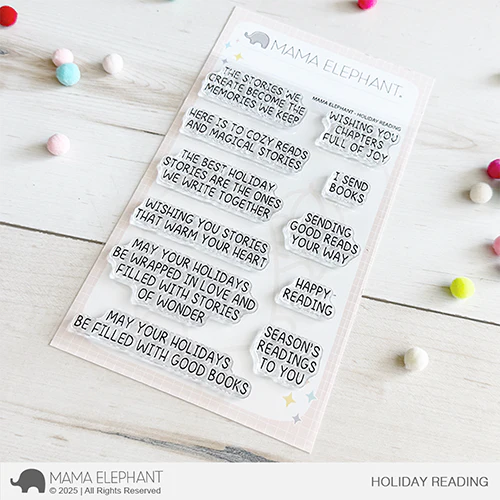 MAMA ELEPHANT.
MAMA ELEPHANT - HOLIDAY READING
THE STORIES WE
CREATE BECOME THE
MEMORIES WE KEEP
HERE IS TO COZY READS
AND MAGICAL STORIES
THE BEST HOLIDAY
STORIES ARE THE ONES
WE WRITE TOGETHER
WISHING YOU STORIES
THAT WARM YOUR HEART
MAY YOUR HOLIDAYS
BE WRAPPED IN LOVE AND
FILLED WITH STORIES
OF WONDER
MAY YOUR HOLIDAYS
BE FILLED WITH GOOD BOOKS
WISHING YOU
CHAPTERS
FULL OF JOY
I SEND
BOOKS
SENDING
GOOD READS
YOUR WAY
HAPPY
READING
SEASON'S
READINGS
TO YOU
MAMA ELEPHANT
© 2025 | All Rights Reserved
HOLIDAY READING